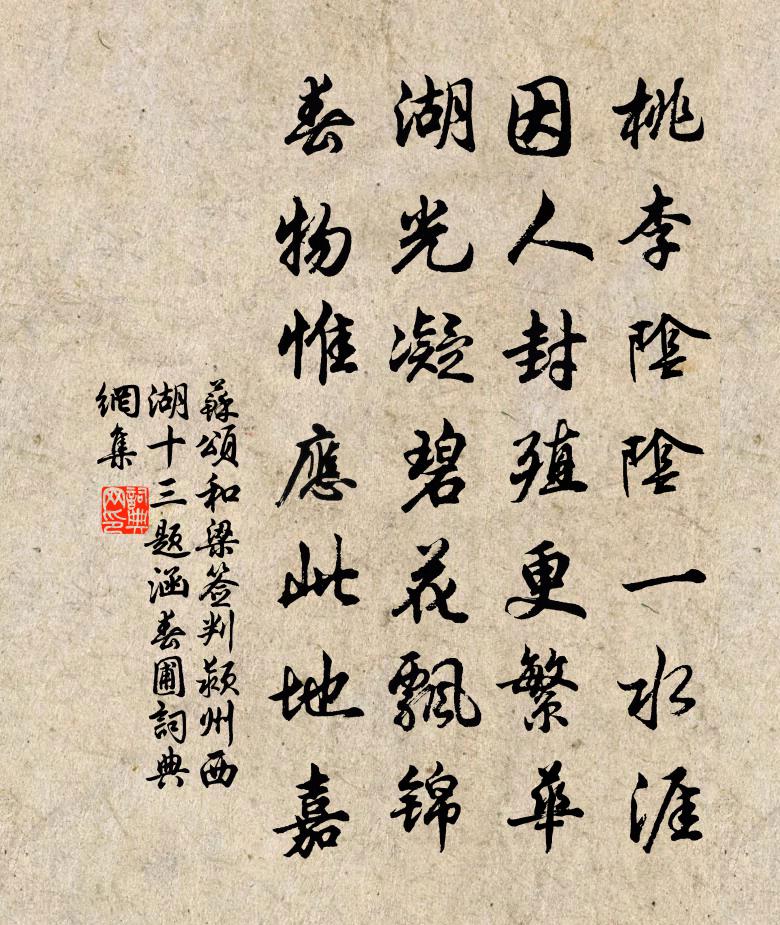 桃李陰陰一水涯
因人封殖更繁華
湖光凝碧花飄錦
春物惟應此地嘉
蘇頌和梁签判颍州西
湖十三题涵春圃詞典
網集
詞典
网印